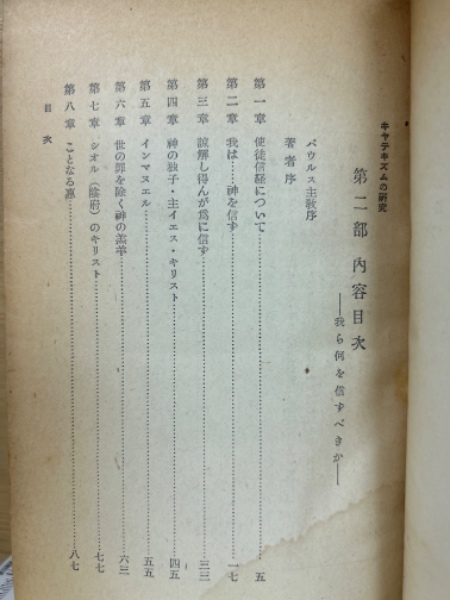 キャテキズムの研究
第二部 内容目次
――我ら何を信ずべきか――
パウルス主教序
著者序
第一章 使徒信経について……五
第二章 我は……神を信ず……一七
第三章 諒解し得んが為に信ず……三三
第四章 神の独子・主イエス・キリスト……四五
第五章 インマヌエル……五五
第六章 世の罪を除く神の羔羊……六三
第七章 シオル（陰府）のキリスト……七七
第八章 ことなる惠……八七
目次